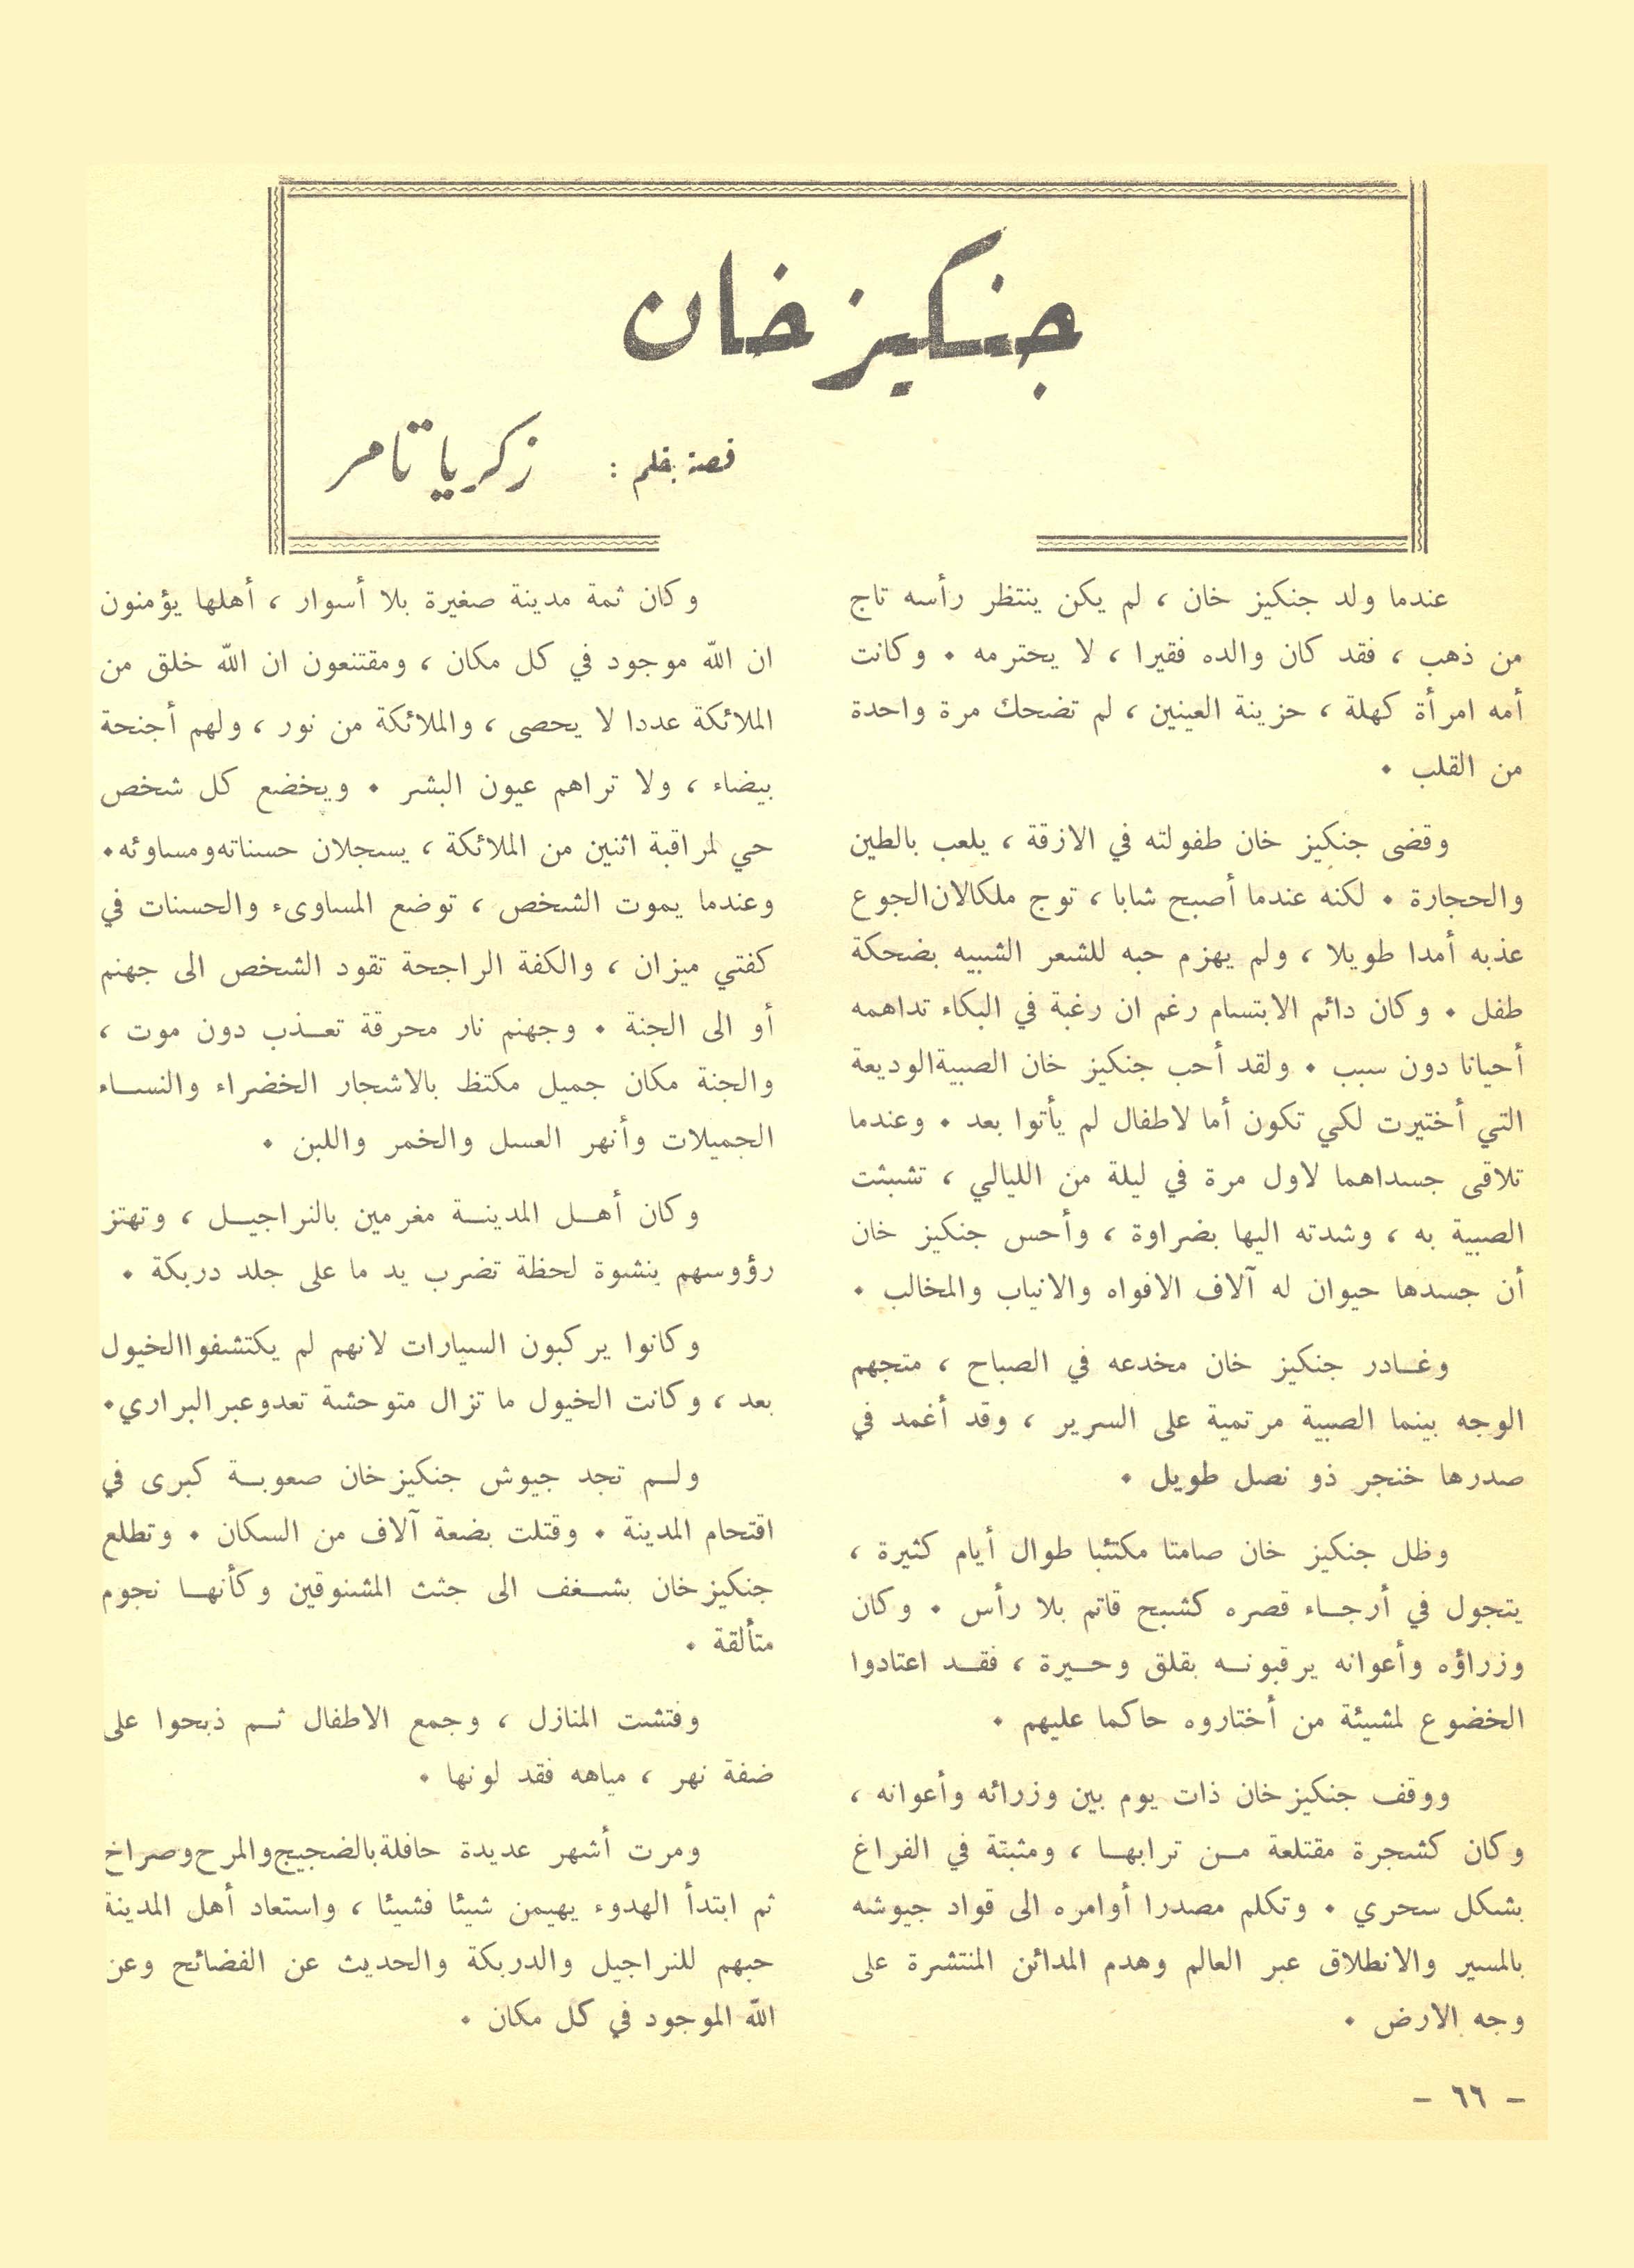 جنكيز خان
قصة بقلم : زكريا تامر
عندما ولد جنكيز خان ، لم يكن ينتظر رأسه تاج
من ذهب ، فقد كان والده فقيرا ، لا يحترمه . وكانت
أمه امرأة كهلة ، حزينة العينين ، لم تضحك مرة واحدة
من القلب .
وقضى جنكيز خان طفولته في الازقة ، يلعب بالطين
والحجارة . لكنه عندما أصبح شابا ، توج ملكا لان الجوع
عذبه أمدا طويلا ، ولم يهزم حبه للشعر الشبيه بضحكة
طفل . وكان دائم الابتسام رغم ان رغبة في البكاء تداهمه
أحيانا دون سبب . ولقد أحب جنكيز خان الصبية الوديعة
التي أختيرت لكي تكون أما لاطفال لم يأتوا بعد . وعندما
تلاقى جسداهما لاول مرة في ليلة من الليالي ، تشبثت
الصبية به ، وشدته اليها بضراوة ، وأحس جنكيز خان
أن جسدها حيوان له آلاف الافواه والانياب والمخالب .
وغـادر جنكيز خان مخدعه في الصباح ، متجهم
الوجه بينما الصبية مرتمية على السرير ، وقد أغمد في
صدرها خنجر ذو نصل طويل .
وظل جنكيز خان صامتا مكتئبا طوال أيام كثيرة ،
يتجول في أرجـاء قصره كشبح قاتم بلا رأس . وكان
وزراؤه وأعوانه يرقبونـه بقلق وحـيرة ، فقـد اعتادوا
الخضوع لمشيئة من أختاروه حاكما عليهم .
ووقف جنكيز خان ذات يوم بين وزرائه وأعوانه ،
وكان كشجرة مقتلعة مـن ترابهـا ، ومثبتة في الفراغ
بشكل سحري . وتكلم مصدرا أوامره الى قواد جيوشه
بالمسير والانطلاق عبر العالم وهدم المدائن المنتشرة على
وجه الارض .
وكان ثمة مدينة صغيرة بلا أسوار ، أهلها يؤمنون
ان الله موجود في كل مكان ، ومقتنعون ان الله خلق من
الملائكة عددا لا يحصى ، والملائكة من نور ، ولهم أجنحة
بيضاء ، ولا تراهم عيون البشر . ويخضع كل شخص
حي لمراقبة اثنين من الملائكة ، يسجلان حسناته ومساوئه .
وعندما يموت الشخص ، توضع المساوىء والحسنات في
كفتي ميزان ، والكفة الراجحة تقود الشخص الى جهنم
أو الى الجنة . وجهنم نار محرقة تعـذب دون موت ،
والجنة مكان جميل مكتظ بالاشجار الخضراء والنسـاء
الجميلات وأنهر العسل والخمر واللبن .
وكان أهـل المدينـة مغرمين بالنراجيـل ، وتهتز
رؤوسهم بنشوة لحظة تضرب يد ما على جلد دربكة .
وكانوا يركبون السيارات لانهم لم يكتشفوا الخيول
بعد ، وكانت الخيول ما تزال متوحشة تعدو عبر البراري .
ولـم تجد جيوش جنكيز خان صعوبـة كبرى في
اقتحام المدينة . وقتلت بضعة آلاف من السكان . وتطلع
جنكيز خان بشـغف الى جثث المشنوقين وكأنهـا نجوم
متألقة .
وفتشت المنازل ، وجمع الاطفال ثـم ذبحوا على
ضفة نهر ، مياهه فقد لونها .
ومرت أشهر عديدة حافلة بالضجيج والمرح وصراخ
ثم ابتدأ الهدوء يهيمن شيئا فشيئا ، واستعاد أهل المدينة
حبهم للنراجيل والدربكة والحديث عن الفضائح وعن
الله الموجود في كل مكان .
- ٦٦ -